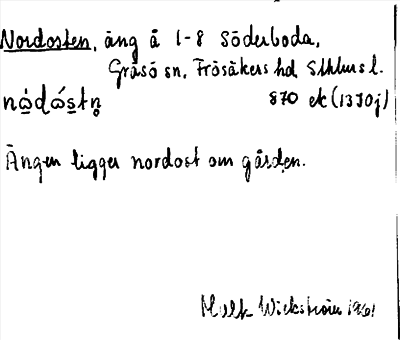 Nordosten, äng å 1-8 Söderboda,
Gräsö sn, Frösåkers hd, Sthlms l.
nǫ̀dǫ́stn̥ 870 ek (13 J 0 j)
Ängen ligger nordost om gården.
Wickström 1961